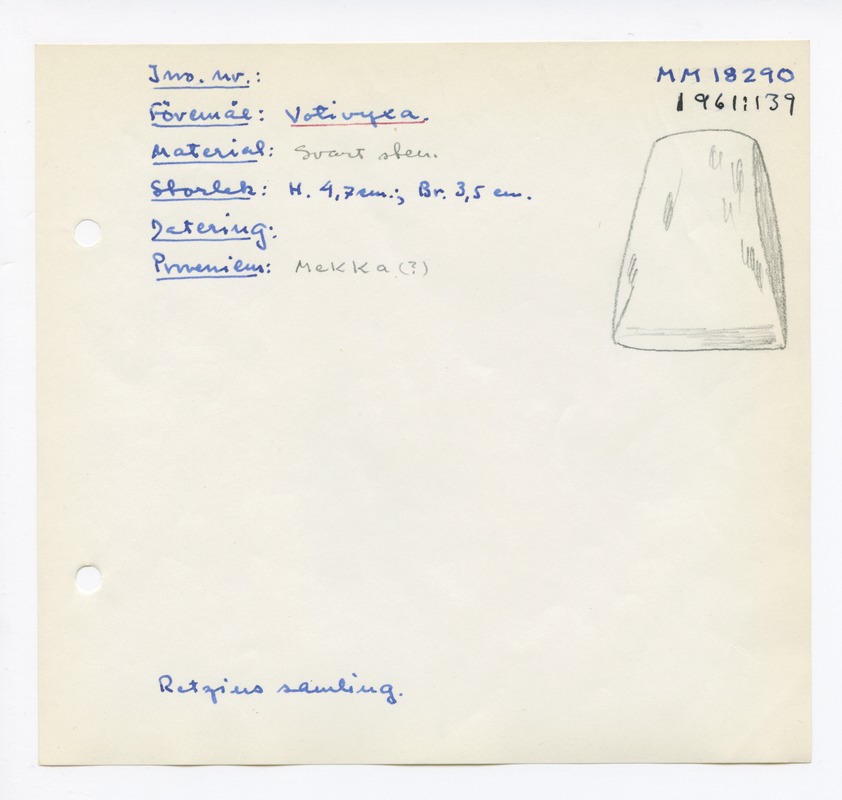 Inv. nr.:
MM 18290
1961:139
Föremål: Votivyxa.
Material: Svart sten.
Storlek: H. 4,7 cm.; Br. 3,5 cm.
Datering:
Proveniens: Mekka (?)
Retzius samling.